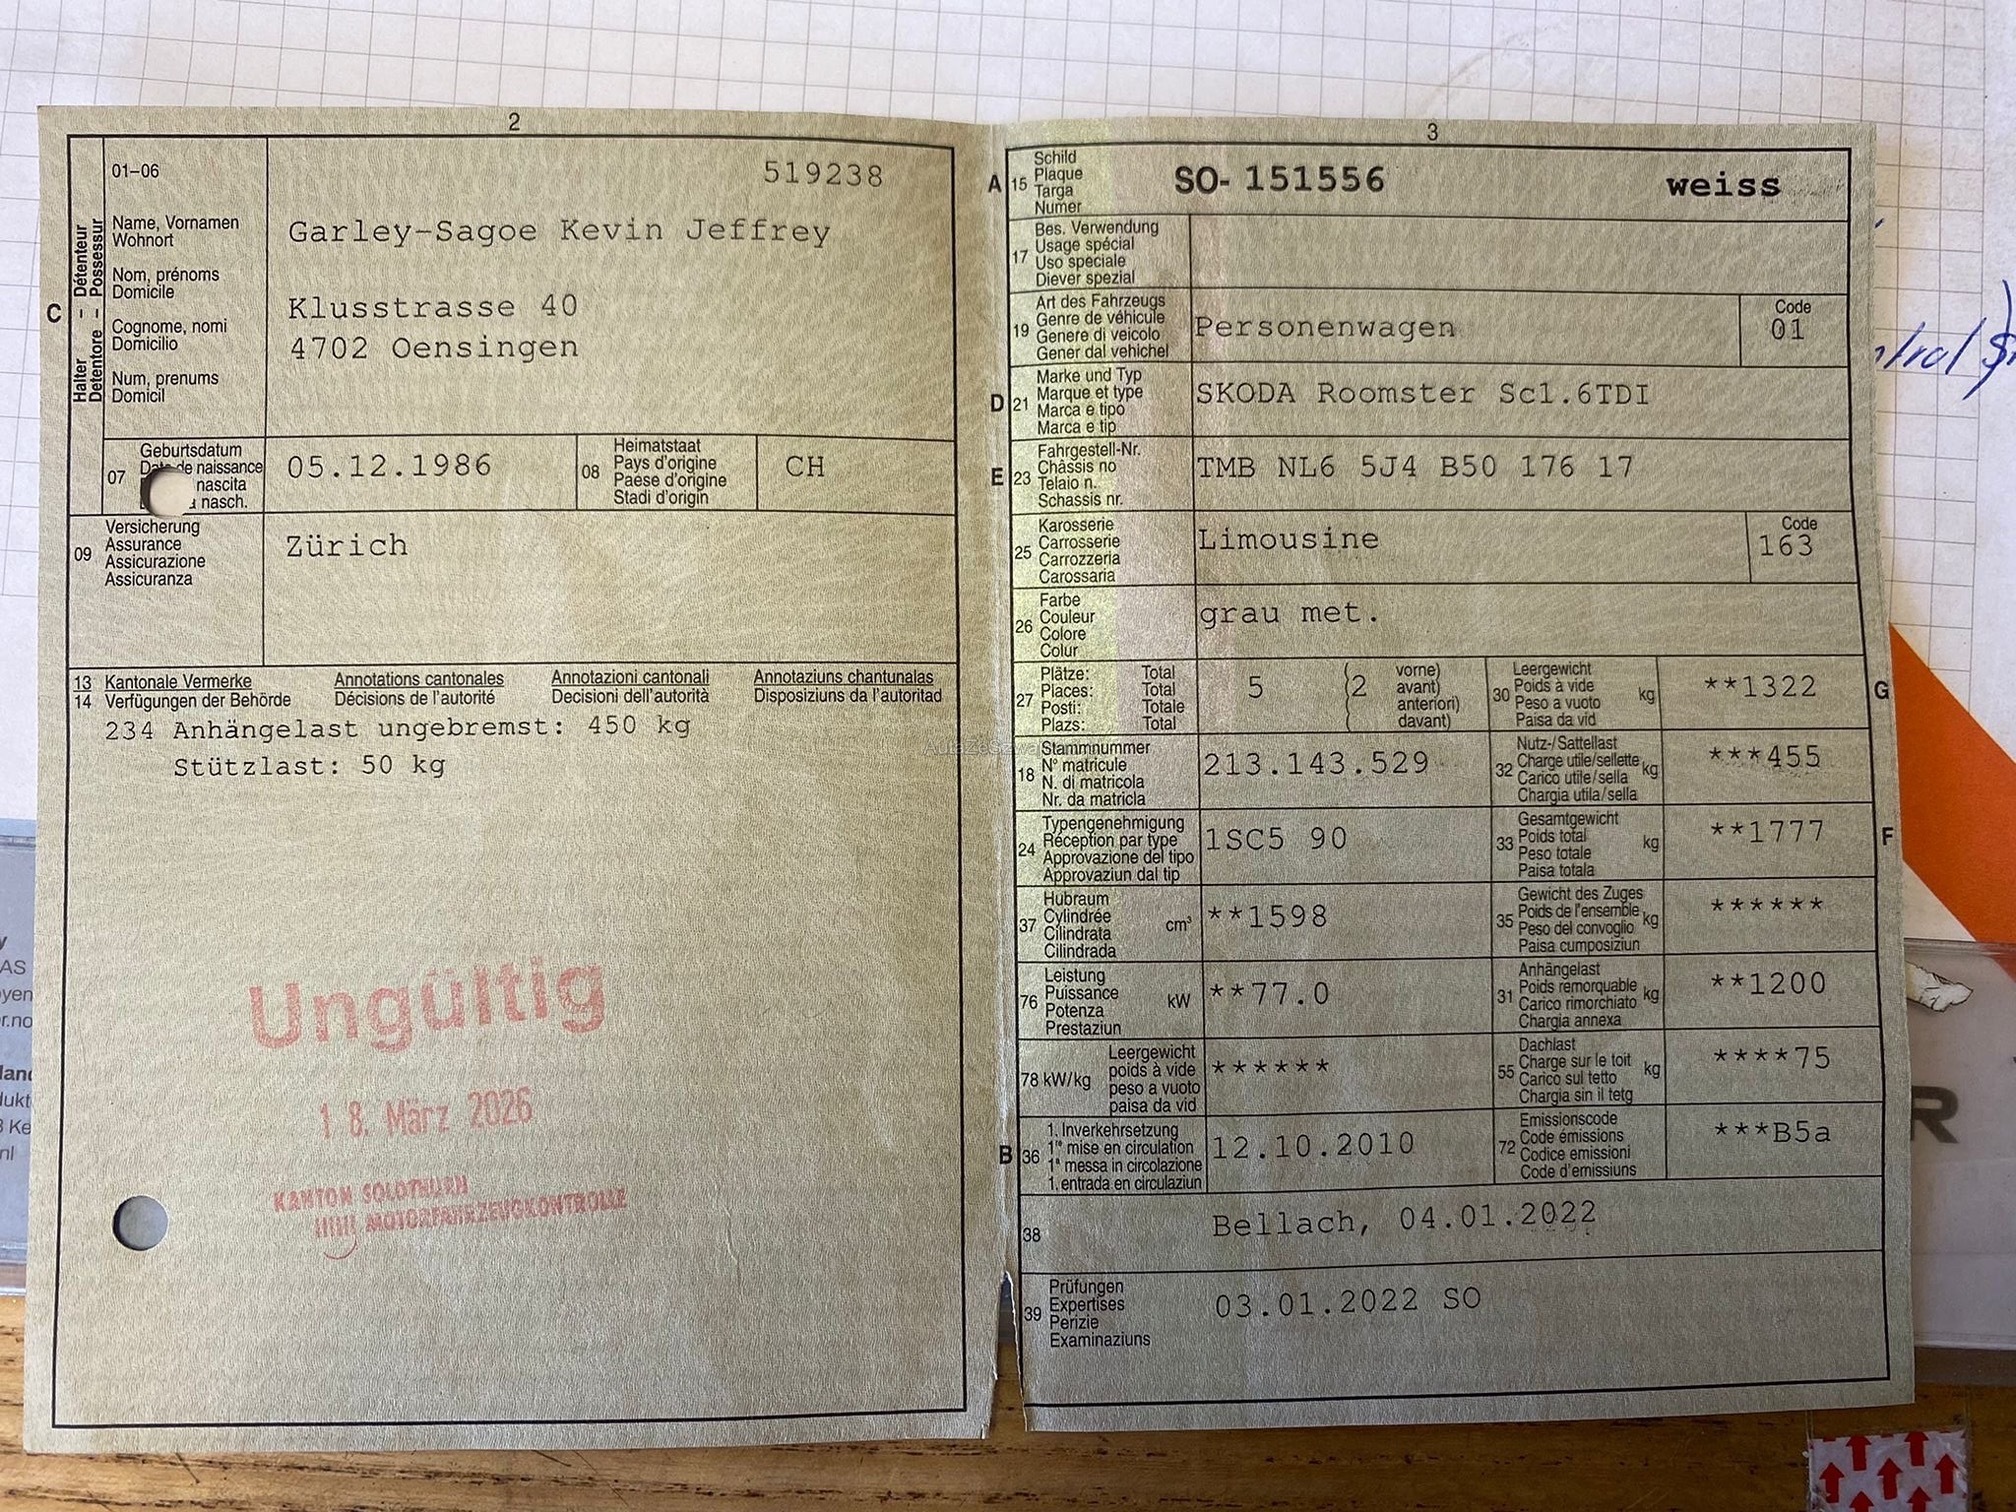 2
01-06
519238
Halter - Détenteur
Detentore - Possessur
C
Name, Vornamen
Wohnort
Nom, prénoms
Domicile
Cognome, nomi
Domicilio
Num, prenums
Domicil
Garley-Sagoe Kevin Jeffrey
Klusstrasse 40
4702 Oensingen
07
Geburtsdatum
de naissance
nascita
nasch.
05.12.1986
08
Heimatstaat
Pays d'origine
Paese d'origine
Stadi d'origin
CH
09
Versicherung
Assurance
Assicurazione
Assicuranza
Zürich
13 Kantonale Vermerke Annotations cantonales Annotazioni cantonali Annotaziuns chantunalas
14 Verfügungen der Behörde Décisions de l'autorité Decisioni dell'autorità Disposiziuns da l'autoritad
234 Anhängelast ungebremst: 450 kg
Stützlast: 50 kg
Ungültig
18. März 2026
KANTON SOLOTHURN
MOTORFAHRZEUGKONTROLLE
3
A
15
Schild
Plaque
Targa
Numer
SO- 151556
weiss
17
Bes. Verwendung
Usage spécial
Uso speciale
Diever spezial
19
Art des Fahrzeugs
Genre de véhicule
Genere di veicolo
Gener dal vehichel
Personenwagen
Code
01
D
21
Marke und Typ
Marque et type
Marca e tipo
Marca e tip
SKODA Roomster Sc1.6TDI
E
23
Fahrgestell-Nr.
Châssis no
Telaio n.
Schassis nr.
TMB NL6 5J4 B50 176 17
25
Karosserie
Carrosserie
Carrozzeria
Carossaria
Limousine
Code
163
26
Farbe
Couleur
Colore
Colur
grau met.
27
Plätze: Total
Places: Total
Posti: Totale
Plazs: Total
5
(2
vorne)
avant)
anteriori)
davant)
30
Leergewicht
Poids à vide
Peso a vuoto
Paisa da vid
kg
**1322
G
18
Stammnummer
N° matricule
N. di matricola
Nr. da matricla
213.143.529
32
Nutz-/Sattellast
Charge utile/sellette
Carico utile/sella
Chargia utila/sella
kg
***455
24
Typengenehmigung
Réception par type
Approvazione del tipo
Approvaziun dal tip
1SC5 90
33
Gesamtgewicht
Poids total
Peso totale
Paisa totala
kg
**1777
F
37
Hubraum
Cylindrée
Cilindrata
Cilindrada
cm³
**1598
35
Gewicht des Zuges
Poids de l'ensemble
Peso del convoglio
Paisa cumposiziun
kg
******
76
Leistung
Puissance
Potenza
Prestaziun
kW
**77.0
31
Anhängelast
Poids remorquable
Carico rimorchiato
Chargia annexa
kg
**1200
78 kW/kg
Leergewicht
poids à vide
peso a vuoto
paisa da vid
******
55
Dachlast
Charge sur le toit
Carico sul tetto
Chargia sin il tetg
kg
****75
B
36
1. Inverkehrsetzung
1re mise en circulation
1a messa in circolazione
1. entrada en circulaziun
12.10.2010
72
Emissionscode
Code émissions
Codice emissioni
Code d'emissiuns
***B5a
38
Bellach, 04.01.2022
39
Prüfungen
Expertises
Perizie
Examinaziuns
03.01.2022 SO